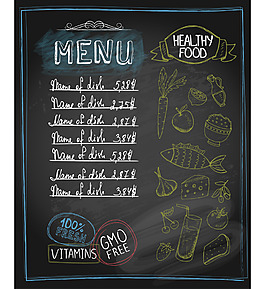 MENU
HEALTHY
FOOD
Name of dish 5,28$
Name of dish 2,75$
Name of dish 2,87$
Name of dish 3,84$
Name of dish 5,28$
Name of dish 2,75$
Name of dish 2,87$
Name of dish 3,84$
100%
FRESH
VITAMINS
GMO
FREE